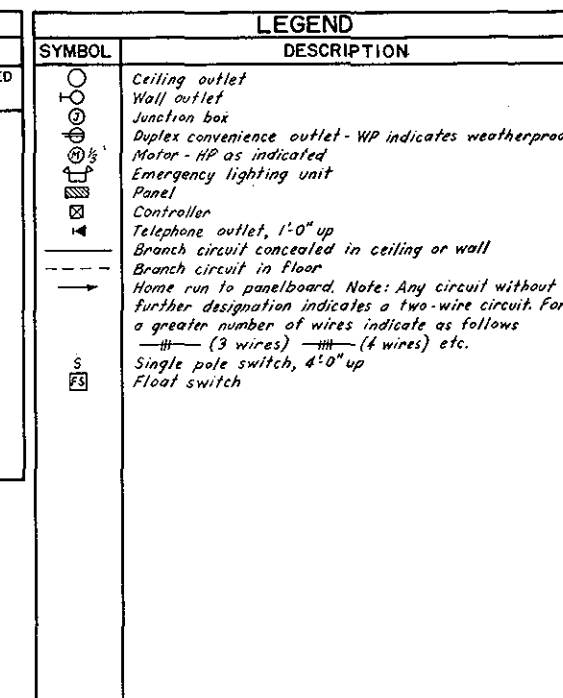 LEGEND
SYMBOL DESCRIPTION
ED
Ceiling outlet
Wall outlet
J Junction box
Duplex convenience outlet - WP indicates weatherproof
M 1/5 Motor - HP as indicated
Emergency lighting unit
Panel
Controller
Telephone outlet, 1'-0" up
Branch circuit concealed in ceiling or wall
Branch circuit in floor
Home run to panelboard. Note: Any circuit without
further designation indicates a two-wire circuit. For
a greater number of wires indicate as follows
(3 wires) (4 wires) etc.
S Single pole switch, 4'-0" up
FS Float switch